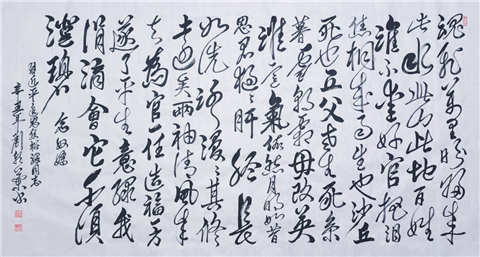 魂飞万里盼归来
此水此山此地百姓
谁不爱好官把泪
焦桐成雨生也沙丘
死也丘父老生死系
暮雪朝霜毋改英
雄意气依然月明如昔
思君夜夜肝胆长
如洗路漫漫其修
远矣两袖清风来
去为官一任造福一方
遂了平生意绿我
涓滴会它千顷
澄碧 念奴娇
习近平追思焦裕禄同志
辛丑年刘